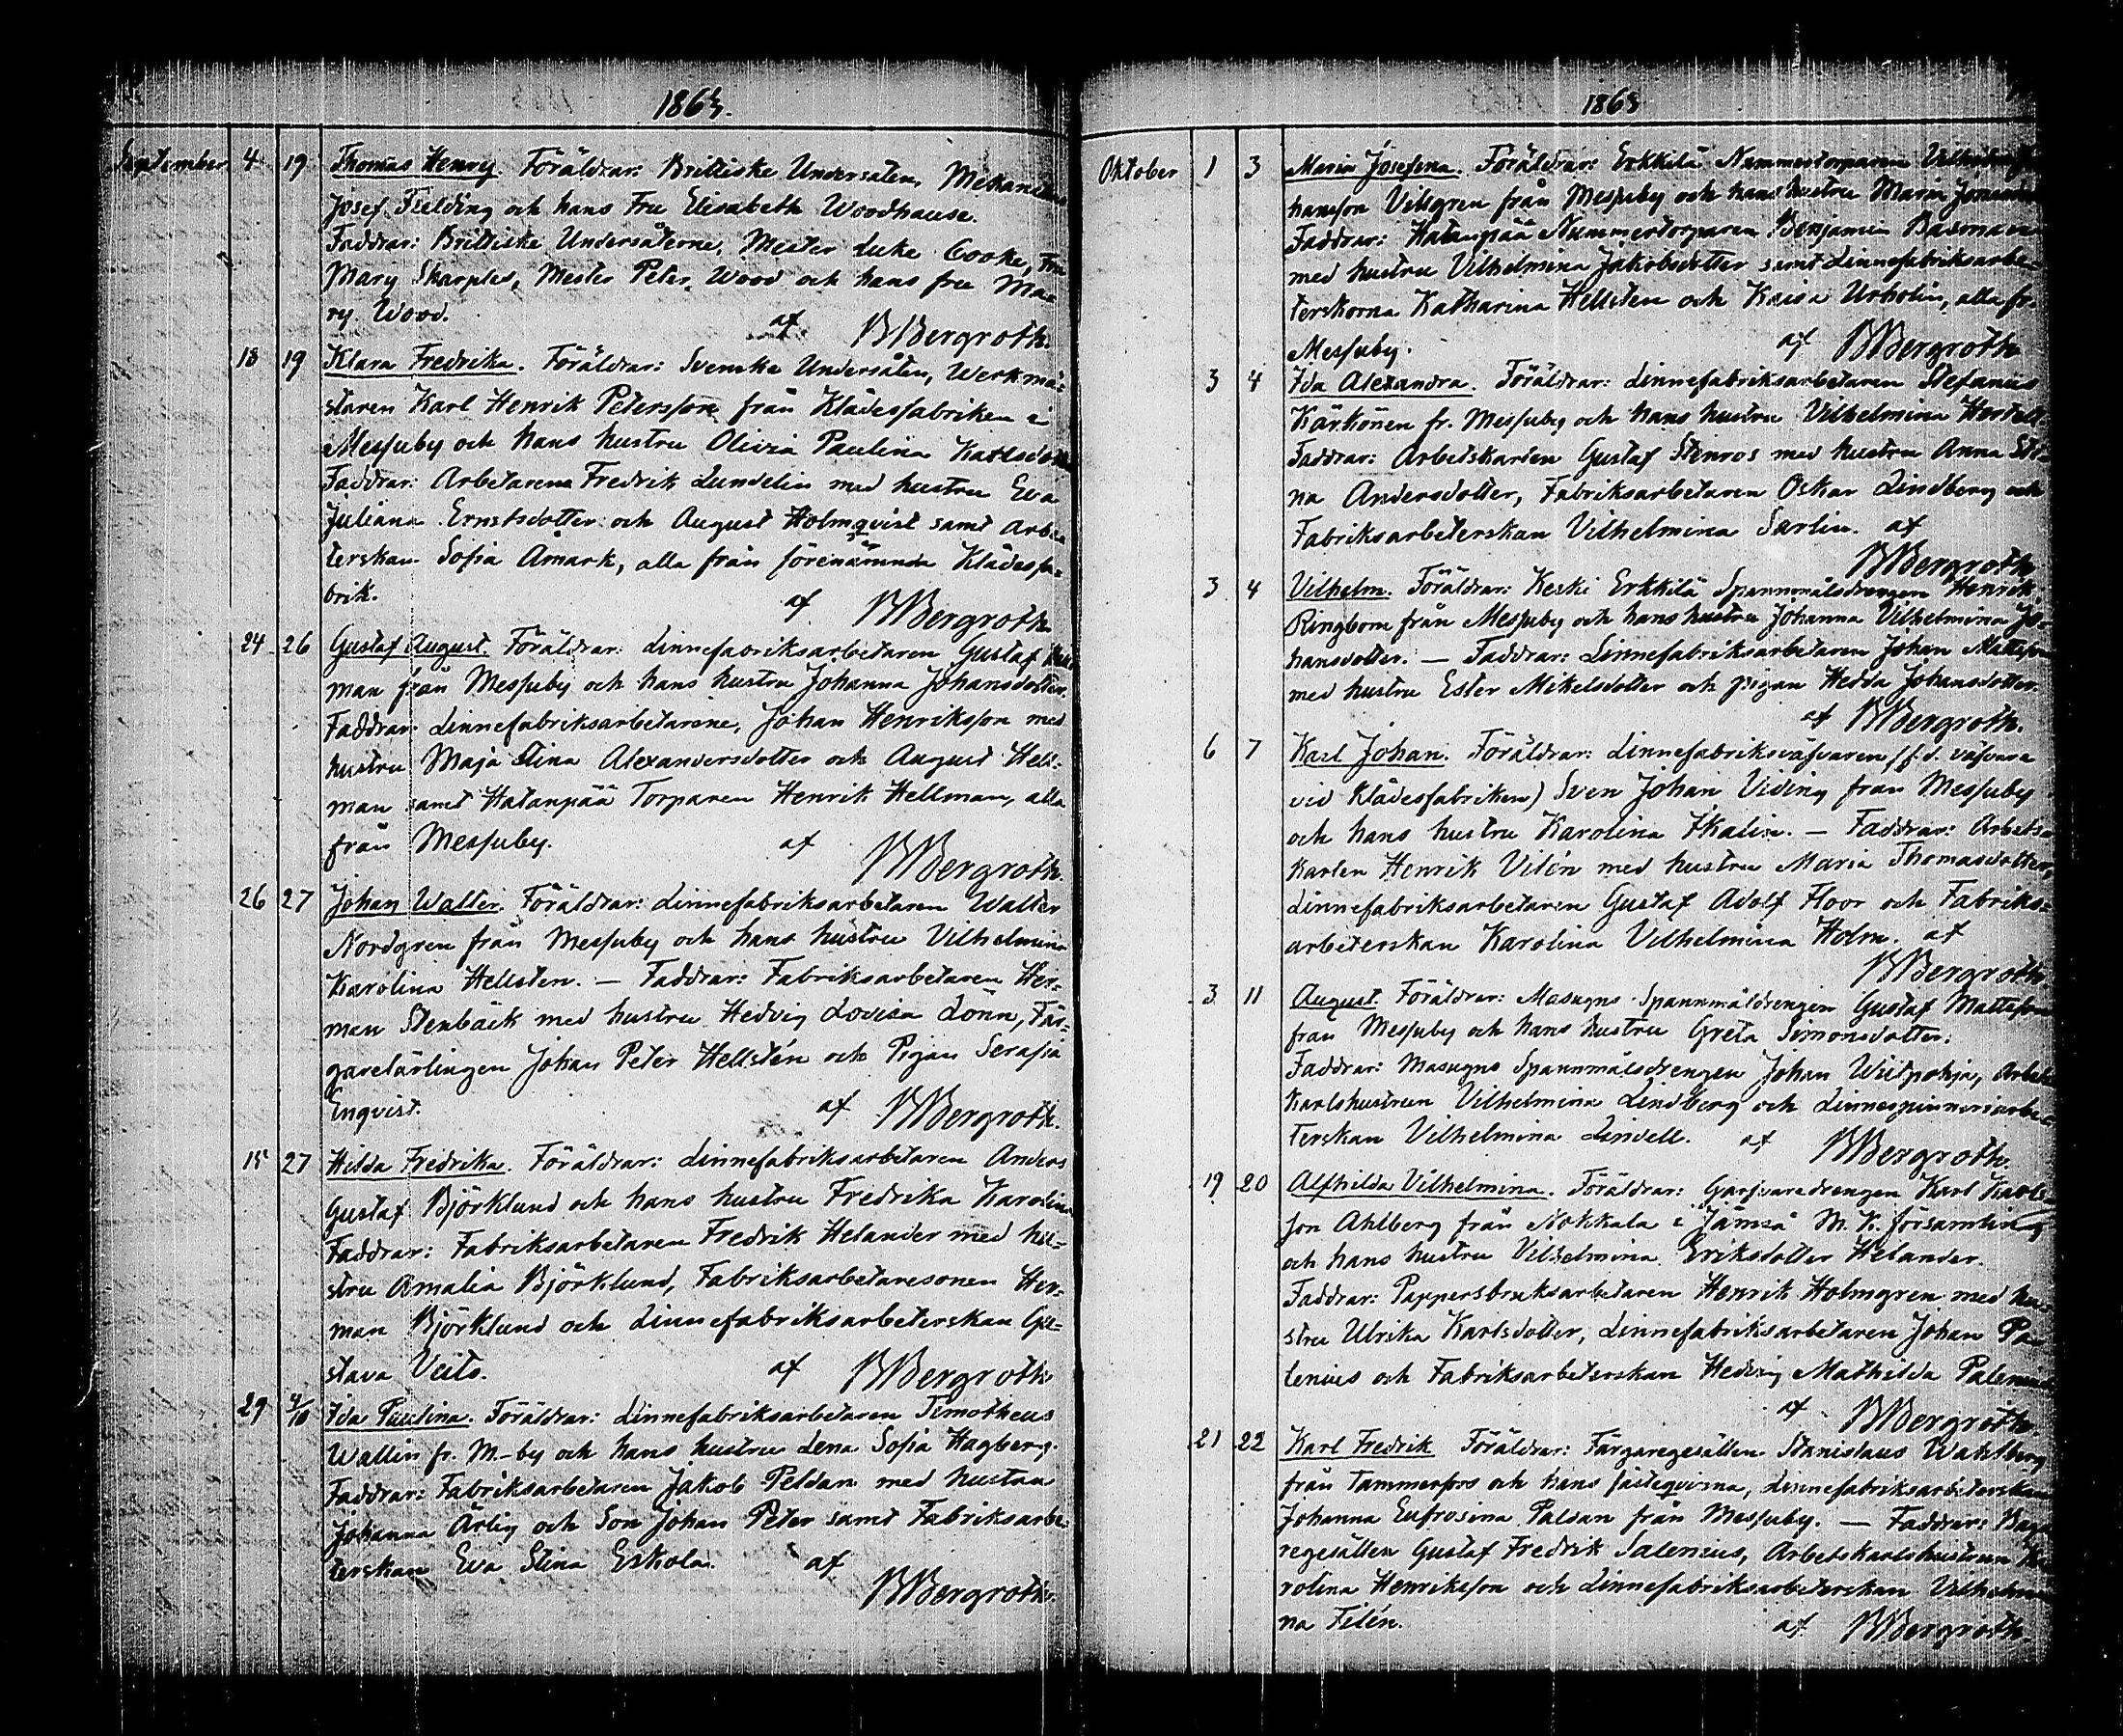 1863.
September 4 19 Thomas Henry. Föräldrar: Brittiske Undersåten, Mekanikus
Josef Fielding och hans Fru Elisabeth Woodhause.
Faddrar: Brittiske Undersåterne, Mester Luke Cooke, Fru
Mary Sharples, Mester Peter Wood och hans fru Ma-
ry Wood. af BBergroth.
18 19 Klara Fredrika. Föräldrar: Svenske Undersåten, Werkmä-
staren Karl Henrik Petersson från Klädesfabriken i
Messuby och hans hustru Olivia Paulina Karlsdotter
Faddrar: Arbetarene Fredrik Lundelin med hustru Eva
Juliana Ernstsdotter och August Holmqvist samt Arbe-
terskan Sofia Åmark, alla från förenämnda Klädesfa-
brik. af BBergroth.
24 26 Gustaf August. Föräldrar: Linnefabriksarbetaren Gustaf
man från Messuby och hans hustru Johanna Johansdotter.
Faddrar: Linnefabriksarbetarene, Johan Henriksson med
hustru Maja Stina Alexandersdotter och August Hell-
man samt Hatanpää Torparen Henrik Hellman, alla
från Messuby. af BBergroth.
26 27 Johan Walter. Föräldrar: Linnefabriksarbetaren Walter
Nordgren från Messuby och hans hustru Vilhelmina
Karolina Hellsten. — Faddrar: Fabriksarbetaren Her-
man Stenbäck med hustru Hedvig Lovisa Lönn, Fär-
garelärlingen Johan Peter Hellstén och Pigan Serafia
Enqvist. af BBergroth.
15 27 Hilda Fredrika. Föräldrar: Linnefabriksarbetaren Anders
Gustaf Björklund och hans hustru Fredrika Karolina
Faddrar: Fabriksarbetaren Fredrik Helander med hu-
stru Amalia Björklund, Fabriksarbetaresonen Her-
man Björklund och Linnefabriksarbeterskan Gu-
stava Veits. af BBergroth
29 4/10 Ida Paulina. Föräldrar: Linnefabriksarbetaren Timotheus
Wallin fr. M.-by och hans hustru Lena Sofia Hagberg.
Faddrar: Fabriksarbetaren Jakob Peldan med hustru
Johanna Ärlig och Son Johan Peter samt Fabriksarbe-
terskan Eva Stina Eskola. af
BBergroth.
1863
Oktober 1 3 Maria Josefina. Föräldrar: Erkkilä Nummertorparen
hansson Vilsgren från Messuby och hans hustru Maria
Faddrar: Hatanpää Nummertorparen Benjamin
med hustru Vilhelmina Jakobsdotter samt Linnefabriksarbe-
terskorna Katharina Hellsten och Kaisa Urholin, alla fr.
Messuby. af BBergroth
3 4 Ida Alexandra. Föräldrar: Linnefabriksarbetaren Stefanus
Kärkönen fr. Messuby och hans hustru Vilhelmina
Faddrar: Arbetskarlen Gustaf Stenros med hustru Anna Sti-
na Andersdotter, Fabriksarbetaren Oskar Lindberg och
Fabriksarbeterskan Vilhelmina Sarlin. af
BBergroth
3 4 Vilhelm. Föräldrar: Keski Erkkilä Spannmålsdrengen Henrik
Ringbom från Messuby och hans hustru Johanna Vilhelmina Jo-
hansdotter. — Faddrar: Linnefabriksarbetaren Johan Mattsson
med hustru Ester Mikelsdotter och pigan Hedda Johansdotter.
af BBergroth.
6 7 Karl Johan. Föräldrar: Linnefabriksväfvaren (f.d. väfvare
vid Klädesfabriken) Sven Johan Viding från Messuby
och hans hustru Karolina Skalin. — Faddrar: Arbets-
karlen Henrik Vilén med hustru Maria Thomasdotter,
Linnefabriksarbetaren Gustaf Adolf Floor och Fabriks-
arbeterskan Karolina Vilhelmina Holm. af
BBergroth.
3 11 August. Föräldrar: Masugns Spannmåldrengen Gustaf Mattsson
från Messuby och hans hustru Greta Simonsdotter.
Faddrar: Masugns Spannmålsdrengen Johan Uitpohja, Arbets-
karlshustrun Vilhelmina Lindberg och Linnespinneriarbe-
terskan Vilhelmina Lindell. af BBergroth.
19 20 Alfhilda Vilhelmina. Föräldrar: Garfvaredrengen Karl Karls-
son Ahlberg från Nokkala i Jämsä M. K. församling
och hans hustru Vilhelmina Eriksdotter Helander.
Faddrar: Pappersbruksarbetaren Henrik Holmgren med hu-
stru Ulrika Karlsdotter, Linnefabriksarbetaren Johan Pa-
lenius och Fabriksarbeterskan Hedvig Mathilda Palenius
af BBergroth.
21 22 Karl Fredrik Föräldrar: Färgaregesällen Stanislaus Wahlberg
från Tammerfors och hans fästeqvinna, Linnefabriksarbeterskan
Johanna Eufrosina Paldan från Messuby. — Faddrar: Baga-
regesällen Gustaf Fredrik Salenius, Arbetskarlshustrun Ka-
rolina Henriksson och Linnefabriksarbeterskan Vilhelmi-
na Filén. af BBergroth.